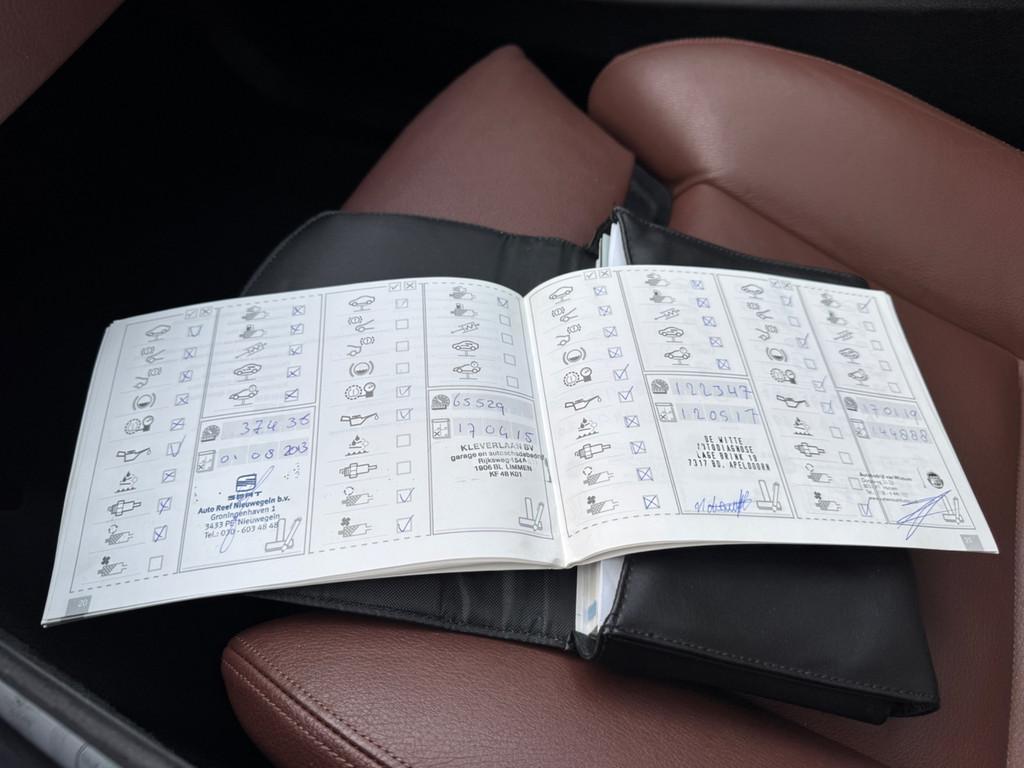 37436
01 08 2013
SEAT
Auto Reef Nieuwegein b.v.
Groningenhaven 1
3433 PE Nieuwegein
Tel.: 030 - 603 48 48
20
65529
17 04 15
KLEVERLAAN BV
garage en autoschadebedrijf
Rijksweg 154A
1906 BL LIMMEN
KF 48 K01
122347
120517
DE WITTE
AUTODIAGNOSE
LAGE BRINK 19
7317 BD, APELDOORN
170119
144888
21